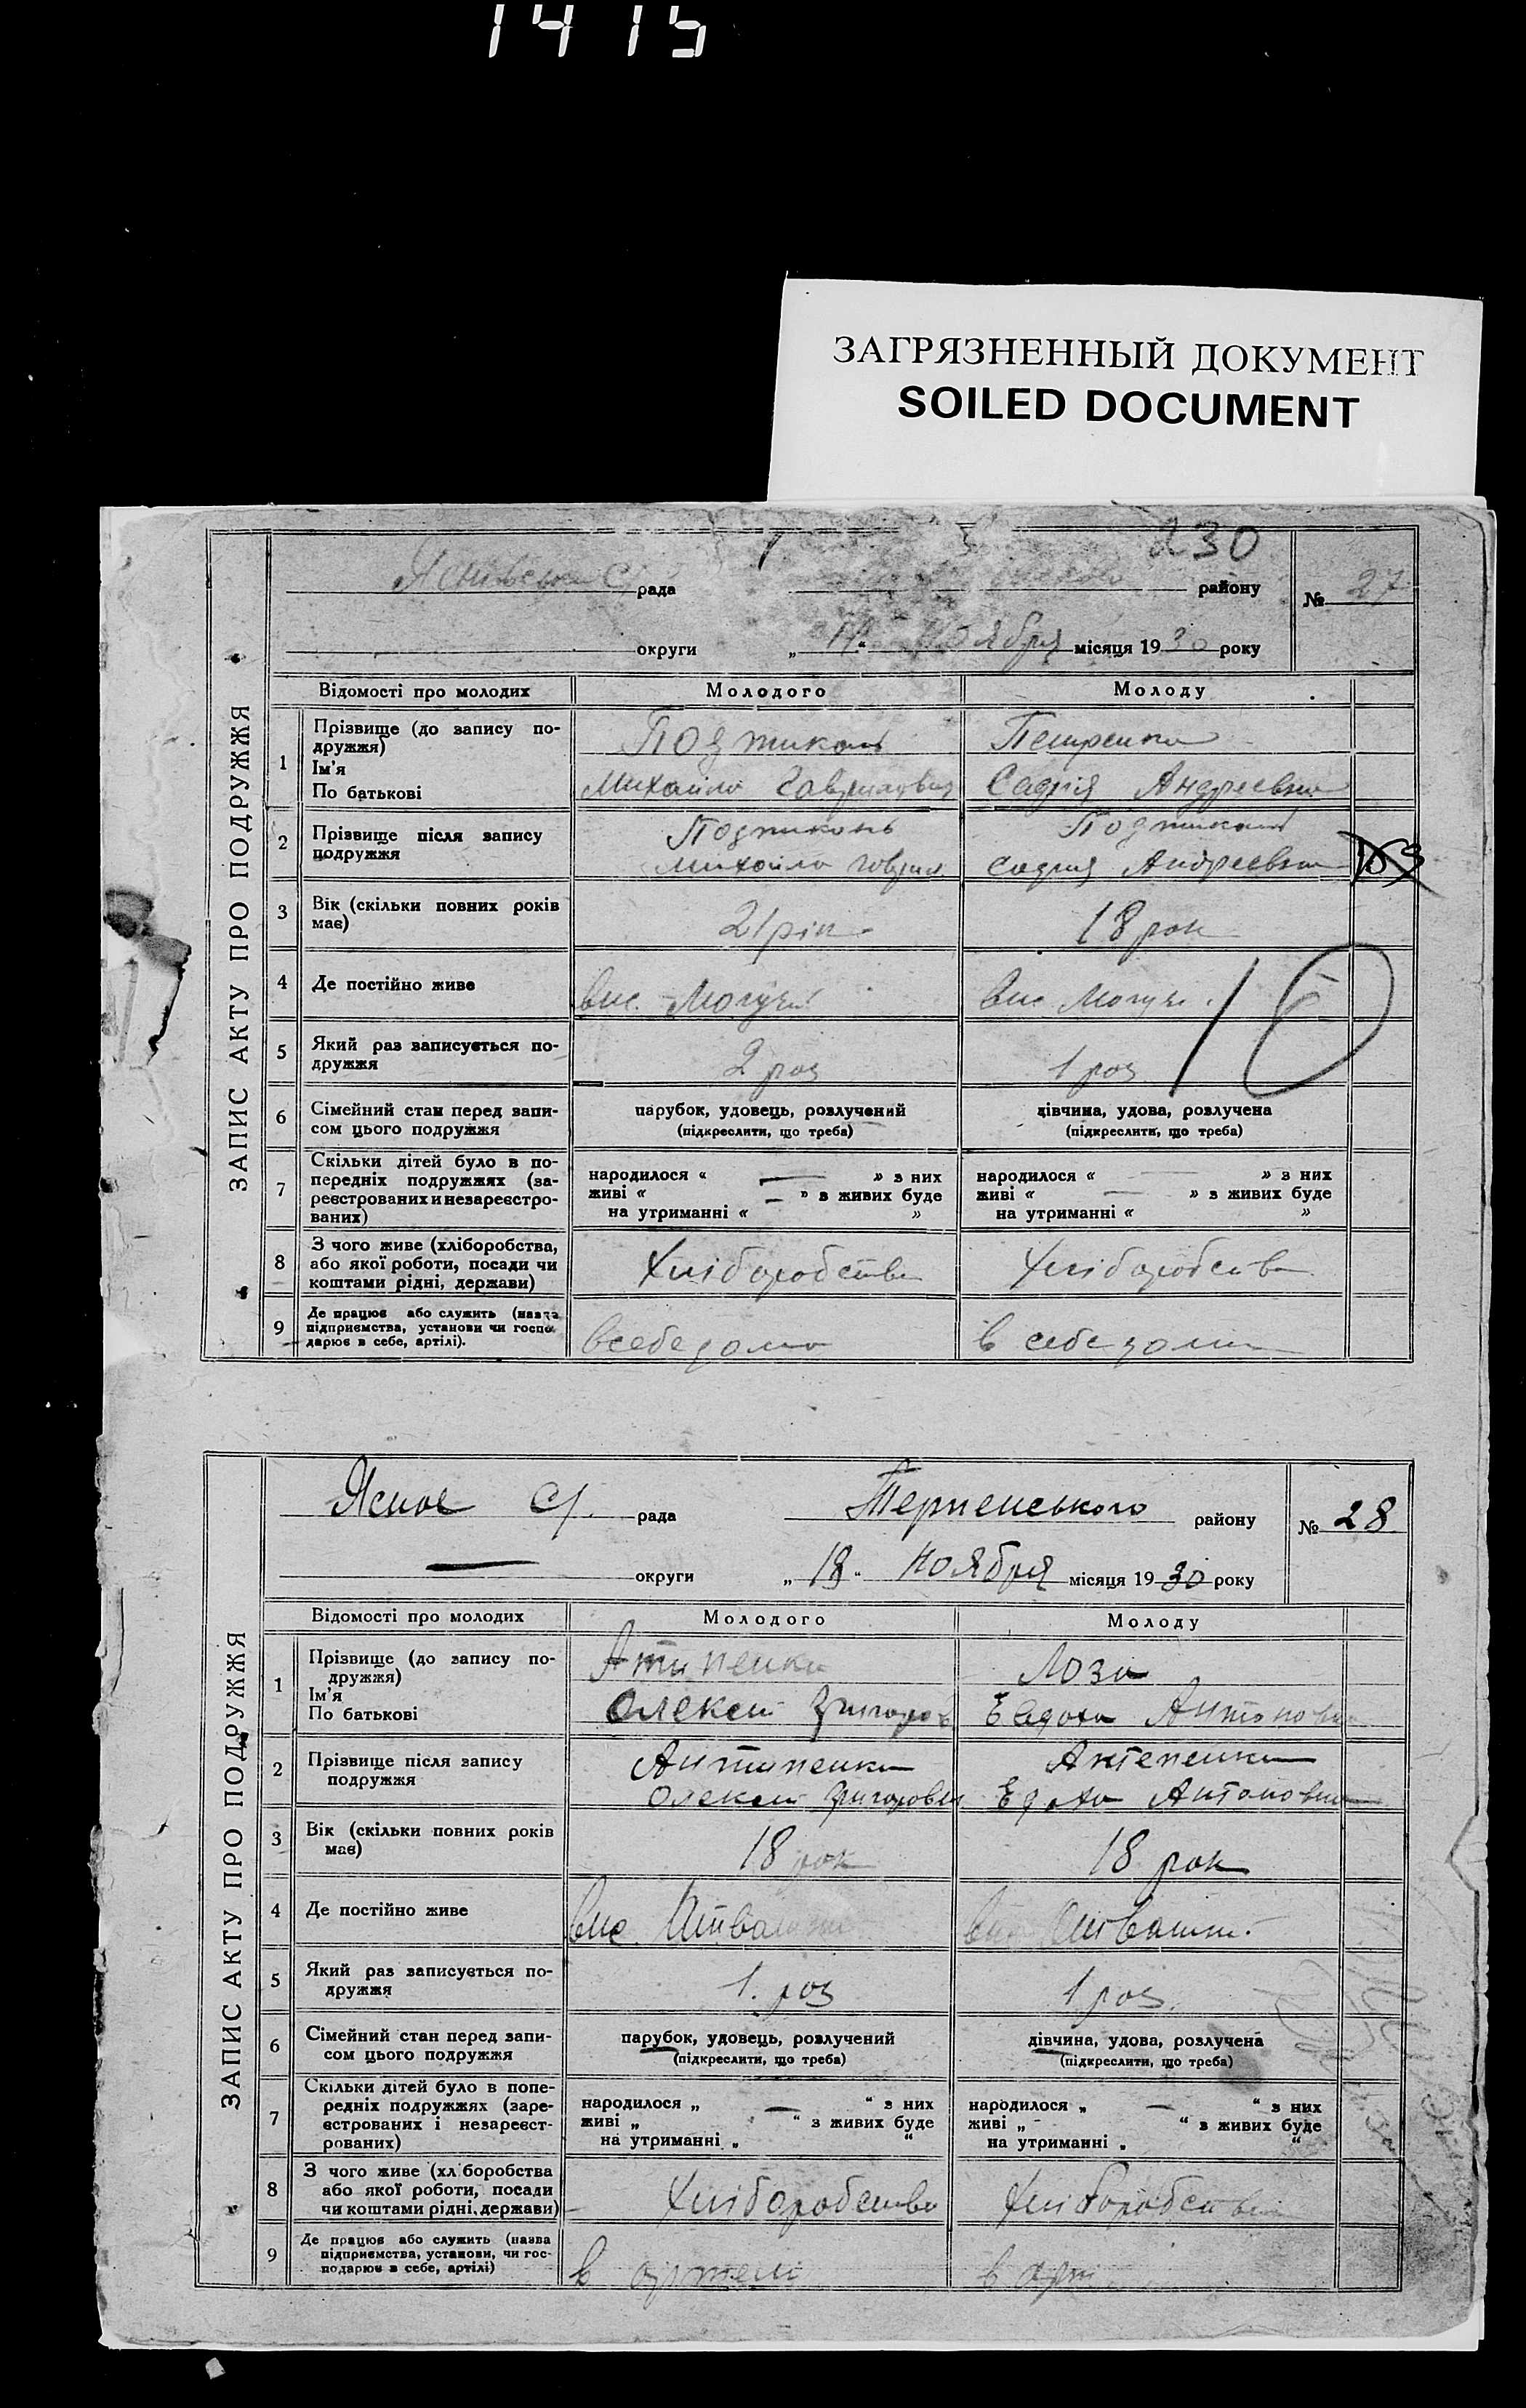 1415
ЗАГРЯЗНЕННЫЙ ДОКУМЕНТ
SOILED DOCUMENT
230
ЗАПИС АКТУ ПРО ПОДРУЖЖЯ
рада району № 27
округи „ “ ноября місяця 1930 року
Відомості про молодих Молодого Молоду
1 Прізвище (до запису по-
дружжя)
Ім'я
По батькові
Петренко
Михайло Андреевна
2 Прізвище після запису
подружжя
Михайло Андреевна
3 Вік (скільки повних років
має)
21 рік 18 рок
4 Де постійно живе
вис. Могучий вис. Могучи
10
5 Який раз записується по-
дружжя
2 раз 1 раз
6 Сімейний стан перед запи-
сом цього подружжя
парубок, удовець, розлучений дівчина, удова, розлучена
(підкреслити, що треба) (підкреслити, що треба)
7 Скільки дітей було в по-
передніх подружжях (за-
реєстрованих и незареєстро-
ваних)
народилося « — » з них народилося « — » з них
живі « — » з живих буде живі « — » з живих буде
на утриманні « » на утриманні « »
8 З чого живе (хліборобства,
або якої роботи, посади чи
коштами рідні, держави)
Хліборобство Хліборобство
9 Де працює або служить (назва
підприємства, установи чи госпо
дарює в себе, артілі).
в себе дома в себе дома
ЗАПИС АКТУ ПРО ПОДРУЖЖЯ
Ясное С/. рада Терпенського району № 28
— округи „18“ ноября місяця 1930 року
Відомості про молодих Молодого Молоду
1 Прізвище (до запису по-
дружжя)
Ім'я
По батькові
Лоза
Олексей Григоров Антоновна
2 Прізвище після запису
подружжя
Антипенко Антепенко
Олексей Григорович Антоновна
3 Вік (скільки повних років
має)
18 рок 18 рок
4 Де постійно живе
вис.
5 Який раз записується по-
дружжя
1. раз 1 раз
6 Сімейний стан перед запи-
сом цього подружжя
парубок, удовець, розлучений дівчина, удова, розлучена
(підкреслити, що треба) (підкреслити, що треба)
7 Скільки дітей було в попе-
редніх подружжях (заре-
єстрованих і незареєст-
рованих)
народилося „ — “ з них народилося „ — “ з них
живі „ “ з живих буде живі „ - “ з живих буде
на утриманні „ “ на утриманні „ “
8 З чого живе (хл боробства
або якої роботи, посади
чи коштами рідні, держави)
Хліборобство Хліборобство
9 Де працює або служить (назва
підприємства, установи, чи гос-
подарює в себе, артілі)
в артелі в арт